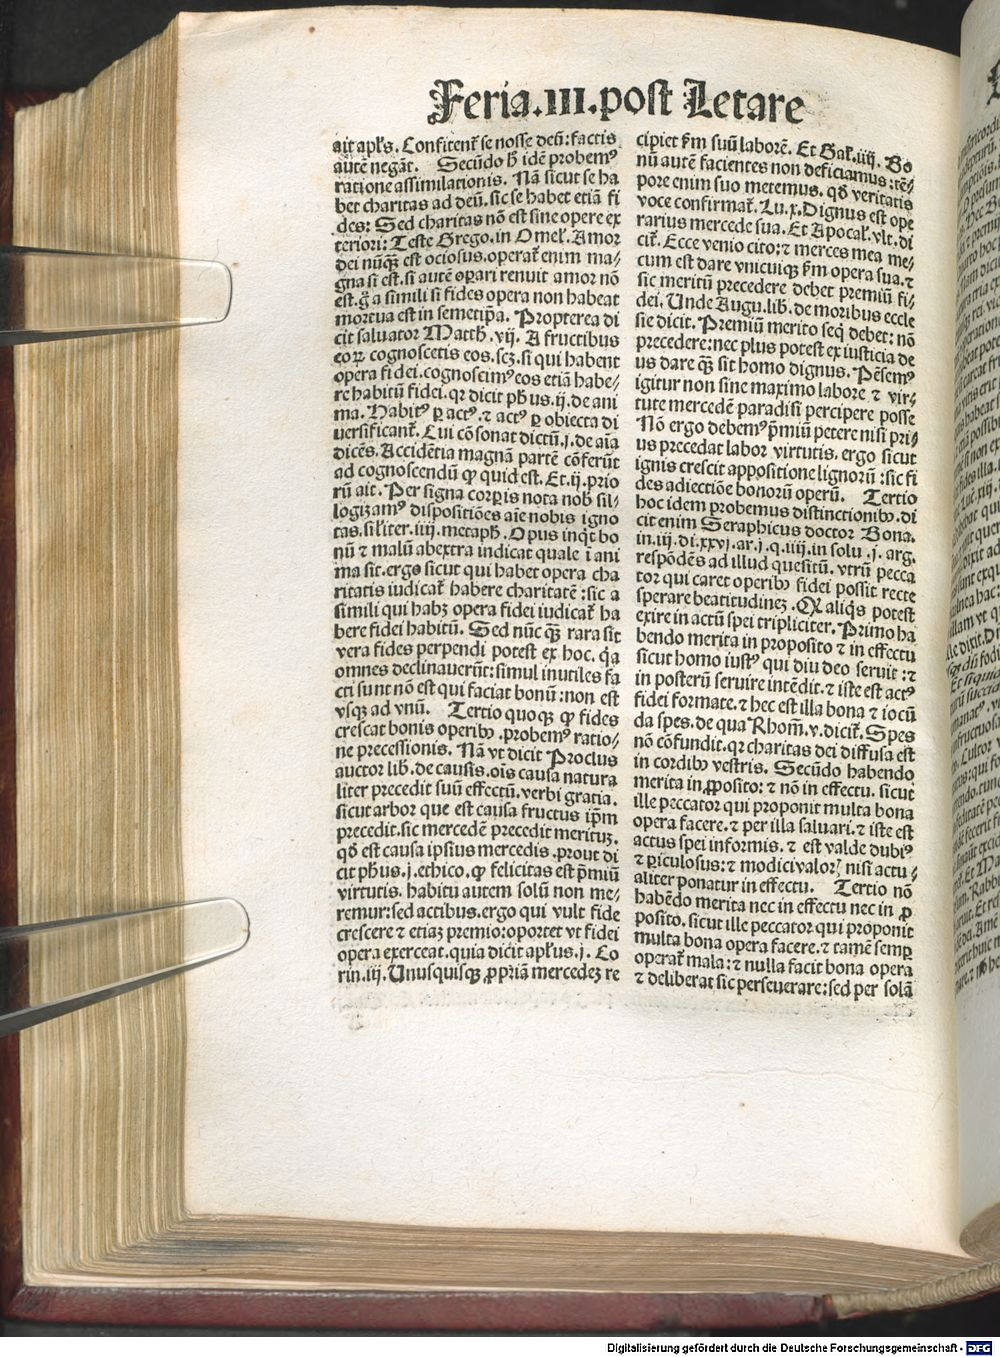 Feria.III.post Letare
ait apl's. Confitent᷑ se nosse deū: factis
autē negāt. Secūdo h̄ idē probemꝰ
ratione assimilationis. Nā sicut se ha
bet charitas ad deū. sic se habet etiā fi
des: Sed charitas nō est sine opere ex
teriori: Teste Grego. in Omel'. Amor
dei nūqȝ est ociosus. operat᷑ enim ma-
gna si est. si autē oꝑari renuit amor nō
est. g̊ a simili si fides opera non habeat
mortua est in semetip̄a. Propterea di
cit saluator Matth. vij. A fructibus
eoꝝ cognoscetis eos. scȝ. si qui habent
opera fidei. cognoscimꝰ eos etiā habe-
re habitū fidei. qr dicit ph̄us. ij. de ani
ma. Habitꝰ ꝑ actꝰ. ⁊ actꝰ ꝑ obiecta di
uersificant᷑. Cui cōsonat dictū. j. de aīa
dicēs. Accidētia magnā partē cōferūt
ad cognoscendū ꝙ quid est. Et. ij. prio
rū ait. Per signa corꝑis nota nob̄ sil-
logizamꝰ dispositiōes aīe nobis igno
tas. sil'iter. iiij. metaph̄. Opus inq̇t bo
nū ⁊ malū abextra indicat quale ī ani
ma sit. ergo sicut qui habet opera cha
ritatis iudicat᷑ habere charitatē: sic a
simili qui habȝ opera fidei iudicat᷑ ha
bere fidei habitū. Sed nūc q̄ȝ rara sit
vera fides perpendi potest ex hoc. q̇a
omnes declinauerūt: simul inutiles fa
cti sunt nō est qui faciat bonū: non est
vsqȝ ad vnū. Tertio quoqȝ ꝙ fides
crescat bonis operibȝ. probemꝰ ratio-
ne precessionis. Nā vt dicit Proclus
auctor lib. de causis. oīs causa natura
liter precedit suū effectū. verbi gratia.
sicut arbor que est causa fructus ip̄m
precedit. sic mercedē precedit meritūȝ.
qd̄ est causa ipsius mercedis. prout di
cit ph̄us. j. ethico. ꝙ felicitas est p̄miū
virtutis. habitū autem solū non me-
remur: sed actibus. ergo qui vult fide
crescere ⁊ etiaȝ premio: oportet vt fidei
opera exerceat. quia dicit apl'us. j. Co
rin. iij. Unusquisqȝ ꝓpriā mercedeȝ re
cipiet fm̄ suū laborē. Et Gal'. iiij. Bo
nū autē facientes non deficiamus: tē-
pore enim suo metemus. qd̄ veritatis
voce confirmat᷑. Lu. x. Dignus est ope
rarius mercede sua. Et Apocal'. vlt. di
cit᷑. Ecce venio cito: ⁊ merces mea me-
cum est dare vnicuiqȝ fm̄ opera sua. ⁊
sic meritū precedere debet premiū fi-
dei. Unde Augu. lib. de moribus eccle
sie dicit. Premiū merito seq̇ debet: nō
precedere: nec plus potest ex iusticia de
us dare q̄ȝ sit homo dignus. Pēsemꝰ
igitur non sine maximo labore ⁊ vir-
tute mercedē paradisi percipere posse
Nō ergo debemꝰ p̄miū petere nisi pri-
us precedat labor virtutis. ergo sicut
ignis crescit appositione lignorū: sic fi
des adiectiōe bonorū operū. Tertio
hoc idem probemus distinctionibȝ. di
cit enim Seraphicus doctor Bona.
in. iij. di. xxvj. ar. j. q. iiij. in solu. j. arg.
respōdēs ad illud quesitū. vtrū pecca
tor qui caret operibȝ fidei possit recte
sperare beatitudineȝ. Qꝫ aliq̇s potest
exire in actū spei tripliciter. Primo ha
bendo merita in proposito ⁊ in effectu
sicut homo iustꝰ qui diu deo seruit: ⁊
in posterū seruire intēdit. ⁊ iste est actꝰ
fidei formate. ⁊ hec est illa bona ⁊ iocū
da spes. de qua Rhom̄. v. dicit᷑. Spes
nō cōfundit. qr charitas dei diffusa est
in cordibȝ vestris. Secūdo habendo
merita in ꝓposito: ⁊ nō in effectu. sicut
ille peccator qui proponit multa bona
opera facere. ⁊ per illa saluari. ⁊ iste est
actus spei informis. ⁊ est valde dubiꝰ
⁊ ꝑiculosus: ⁊ modici valorꝭ nisi actu-
aliter ponatur in effectu. Tertio nō
habēdo merita nec in effectu nec in ꝓ
posito. sicut ille peccator qui proponit
multa bona opera facere. ⁊ tamē semꝑ
operat᷑ mala: ⁊ nulla facit bona opera
⁊ deliberat sic perseuerare: sed per solā
Digitalisierung gefördert durch die Deutsche Forschungsgemeinschaft - DFG